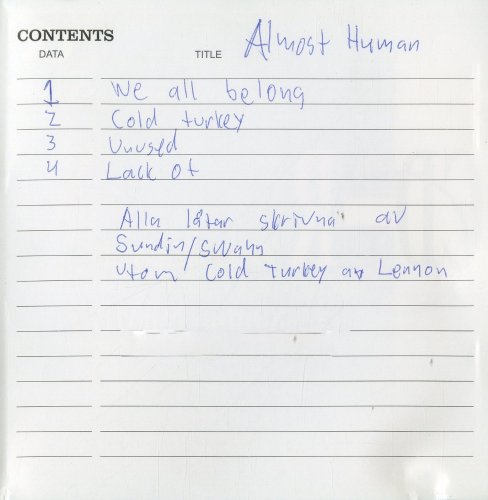 CONTENTS
DATA TITLE Almost Human
1 We all belong
2 Cold turkey
3 Unused
4 Lack of
Alla låtar skrivna av
Sundin/Swahn
utom Cold Turkey av Lennon